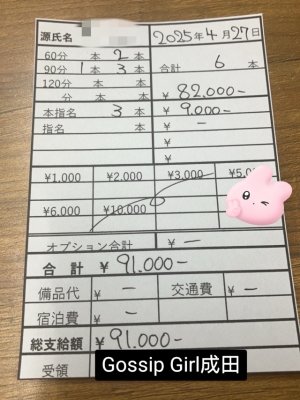 源氏名
2025年4月27日
60分 本 2本
90分 1本 3本
合計 6本
120分 本 本
分 本 本
¥82,000-
本指名 3本
¥9,000-
指名 本
¥ -
¥
¥
¥1,000 ¥2,000 ¥3,000 ¥5,0
¥6,000 ¥10,000
オプション合計 ¥ -
合計 ¥91,000-
備品代 ¥ - 交通費 ¥ -
宿泊費 ¥ -
総支給額 ¥91,000-
Gossip Girl成田
受領